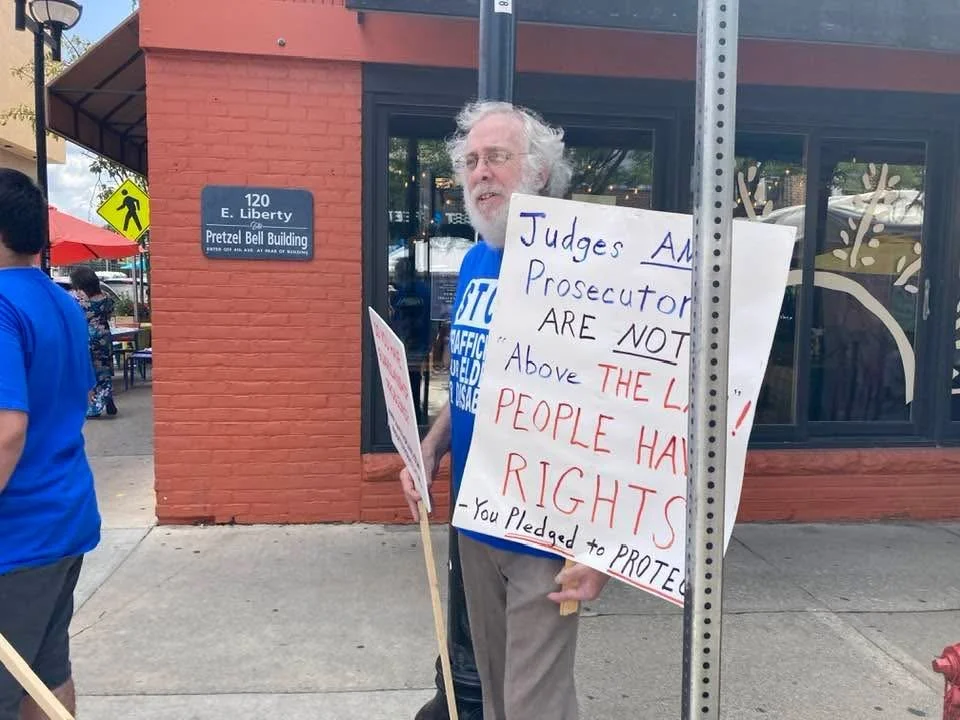 120
E. Liberty
The
Pretzel Bell Building
ENTER OFF 4TH AVE. AT REAR OF BUILDING
8
Judges AN
Prosecutor
ARE NOT
"Above THE LA" !
PEOPLE HAV
RIGHTS
- You Pledged to PROTEC
STO
RAFFIC
UR ELD
DISAB